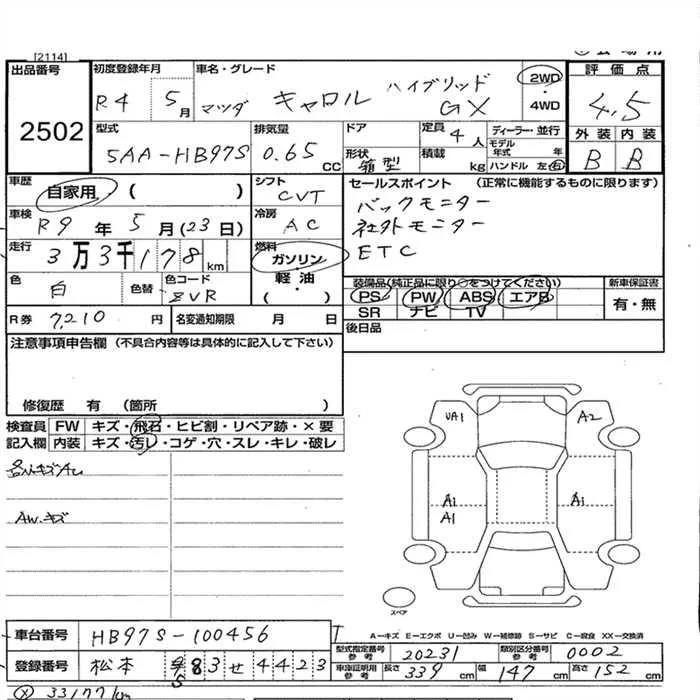 [2114]
出品番号 2502
初度登録年月 R4 5月
車名・グレード マツダ キャロル ハイブリッド GX
2WD・4WD
評価点 4.5
外装 内装
B B
型式 5AA-HB97S
排気量 0.65 CC
ドア
形状 箱型
定員 4人
積載 kg
ディーラー・並行
モデル年式 年
ハンドル 左・右
車歴 自家用 ( )
シフト CVT
車検 R9年5月(23日)
冷房 AC
走行 3万3千178km
燃料 ガソリン 軽・油 ( )
色 白 色替
色コード ZVR
R券 7,210円
名変通知期限 月 日
セールスポイント (正常に機能するものに限ります)
バックモニター
社外モニター
ETC
装備品(純正品に限り○をつけてください)
新車保証書
PS PW ABS エアB
SR ナビ TV
有・無
後日品
注意事項申告欄 (不具合内容等は具体的に記入して下さい)
修復歴 有 (箇所 )
検査員記入欄
FW キズ・飛石・ヒビ割・リペア跡・×要
内装 キズ・汚レ・コゲ・穴・スレ・キレ・破レ
AW.キズ
UA1 A2
A1 A1
A1
スペア
A—キズ E—エクボ U—凹み W—補修跡 S—サビ C—腐食 XX—交換済
車台番号 HB97S-100456
登録番号 松本 583せ4423
型式指定番号 参考 20231
類別区分番号 参考 0002
車庫証明用 参考 長さ 339cm 幅 147cm 高さ 152cm
33177km